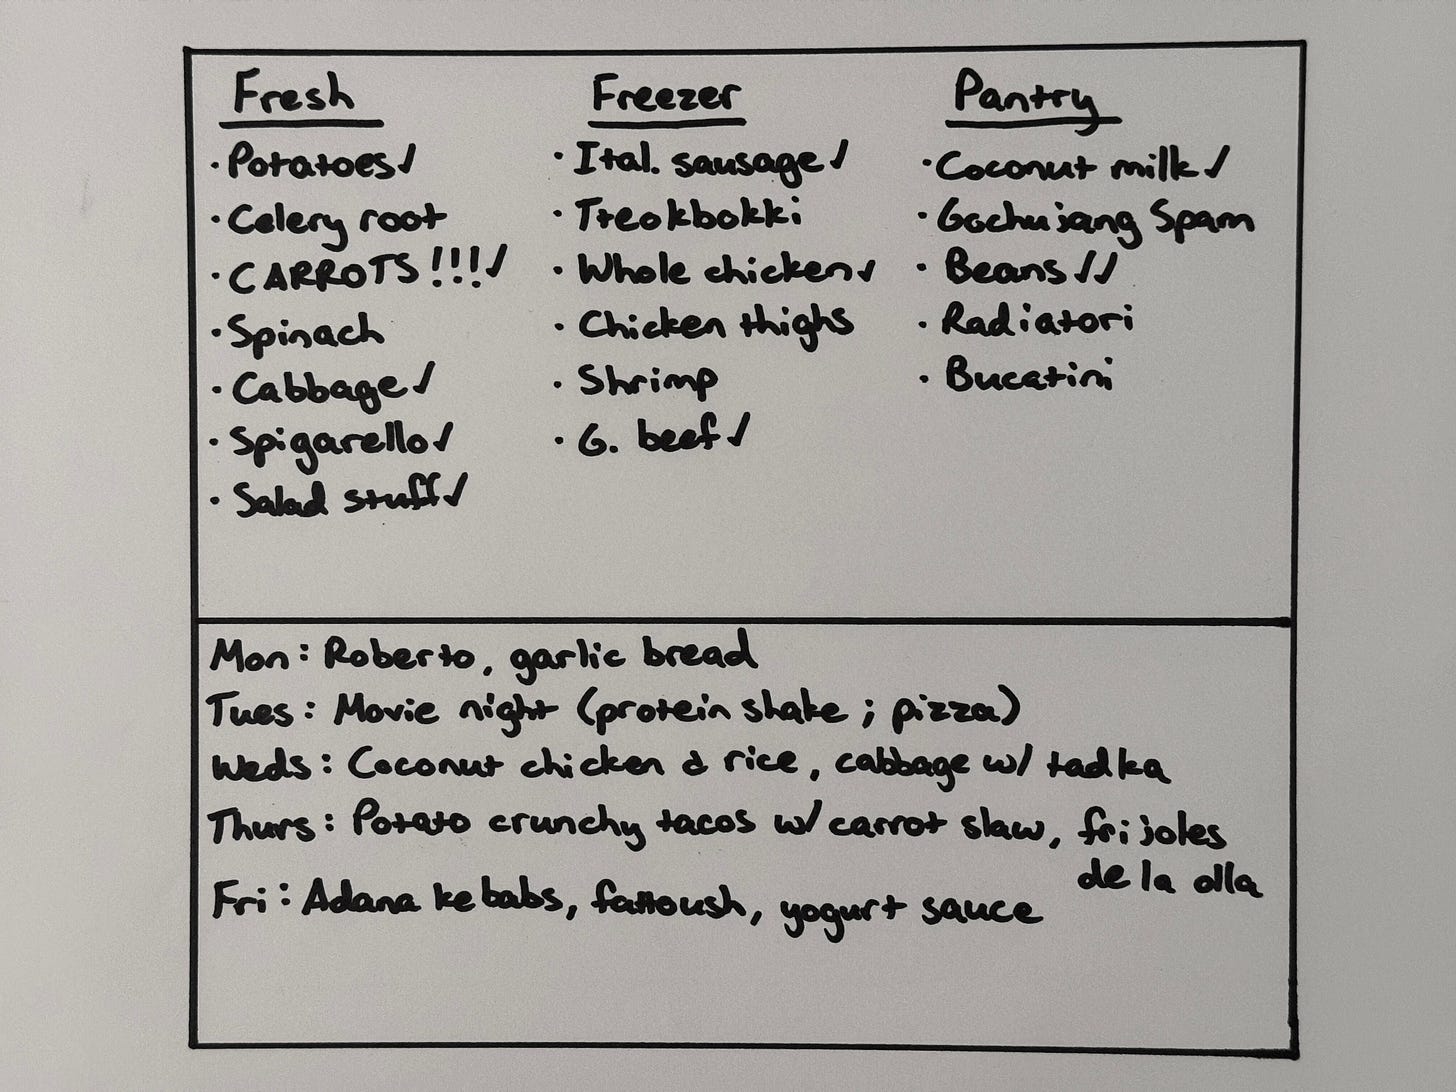 Fresh
· Potatoes ✓
· Celery root
· CARROTS !!! ✓
· Spinach
· Cabbage ✓
· Spigarello ✓
· Salad stuff ✓
Freezer
· Ital. sausage ✓
· Tteokbokki
· Whole chicken ✓
· Chicken thighs
· Shrimp
· G. beef ✓
Pantry
· Coconut milk ✓
· Gochujang Spam
· Beans ✓✓
· Radiatori
· Bucatini
Mon: Roberto, garlic bread
Tues: Movie night (protein shake; pizza)
Weds: Coconut chicken & rice, cabbage w/ tadka
Thurs: Potato crunchy tacos w/ carrot slaw, frijoles
de la olla
Fri: Adana kebabs, fattoush, yogurt sauce